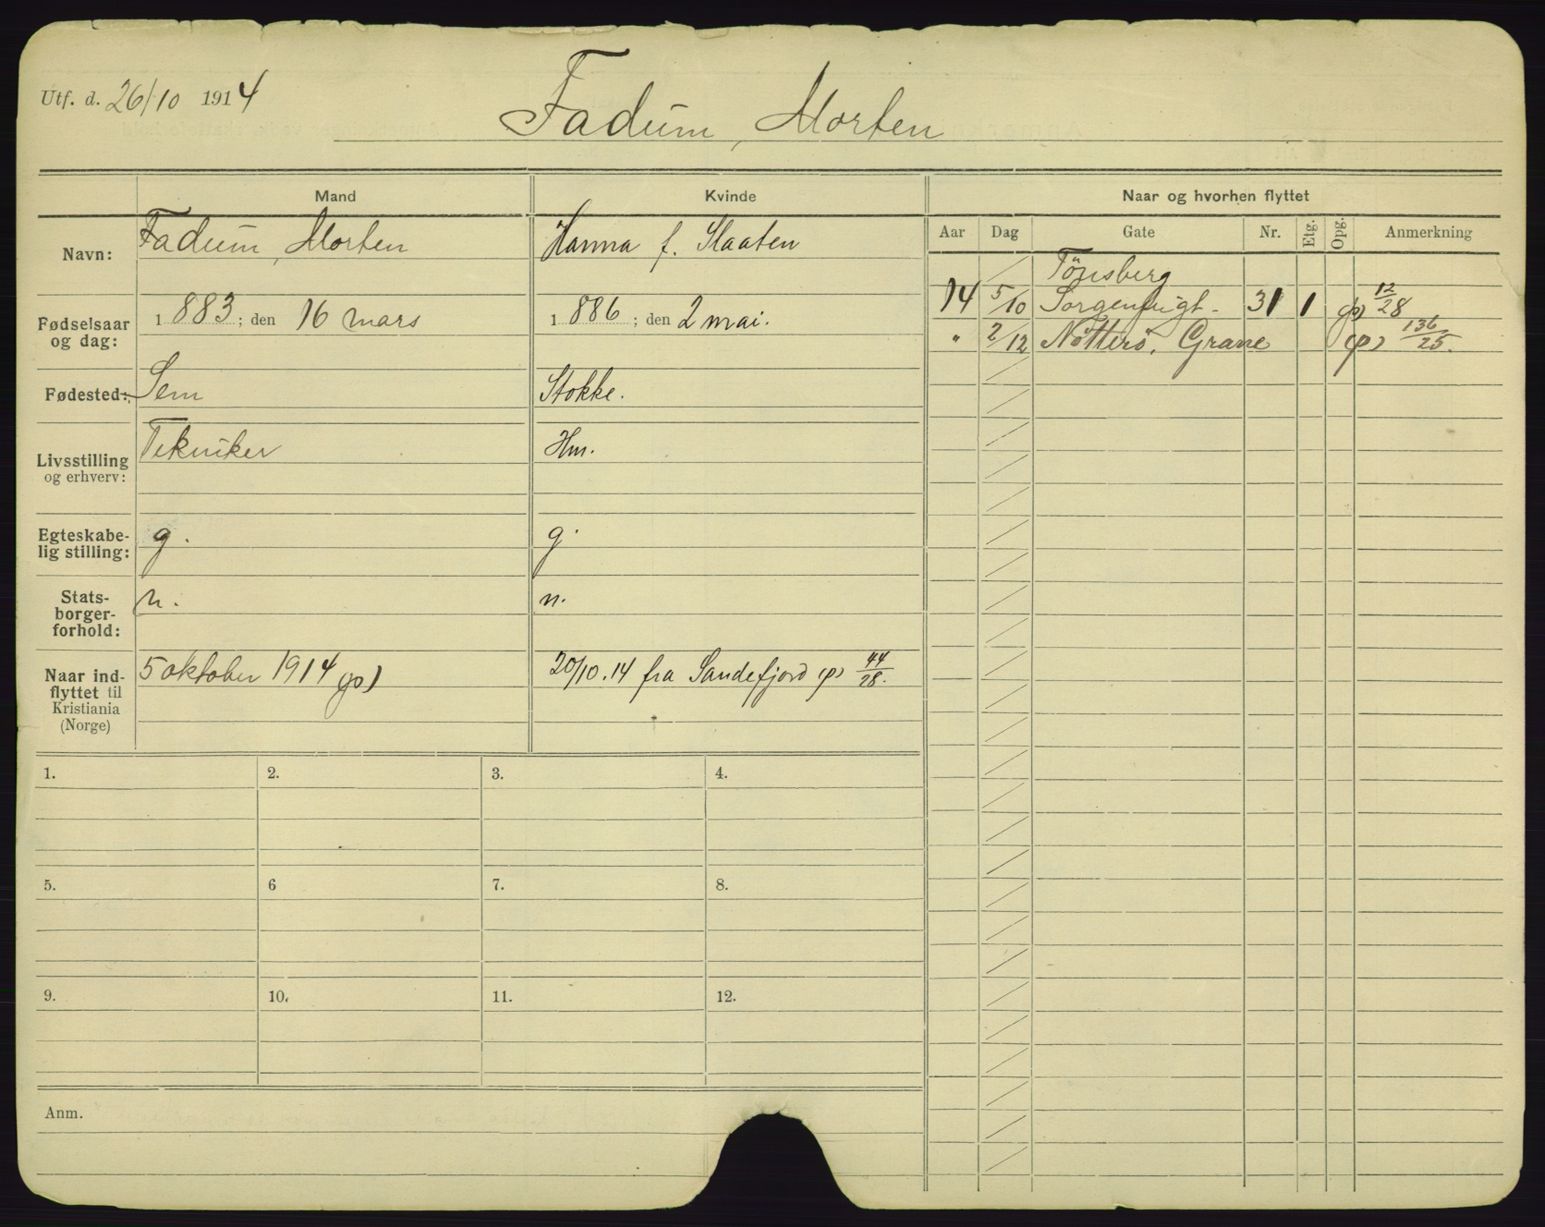 Utf. d. 26/10 1914
Fadum, Morten
Mand
Kvinde
Naar og hvorhen flyttet
Navn:
Fadum, Morten
Hanna f. Slaaten
Aar
Dag
Gate
Nr.
Etg.
Opg.
Anmerkning
Tönsberg
14 5/10 Sorgenfrigt. 31 1 12/28
" 2/12 Nötterö, Grane 136/25.
Fødselsaar
og dag:
1883; den 16 mars
1886; den 2 mai.
Fødested:
Sem
Stokke.
Livsstilling
og erhverv:
Tekniker
Hm.
Egteskabe-
lig stilling:
g.
g.
Stats-
borger-
forhold:
n.
n.
Naar ind-
flyttet til
Kristiania
(Norge)
5 oktober 1914
20/10.14 fra Sandefjord 44/28.
1.
2.
3.
4.
5.
6
7.
8.
9.
10.
11.
12.
Anm.